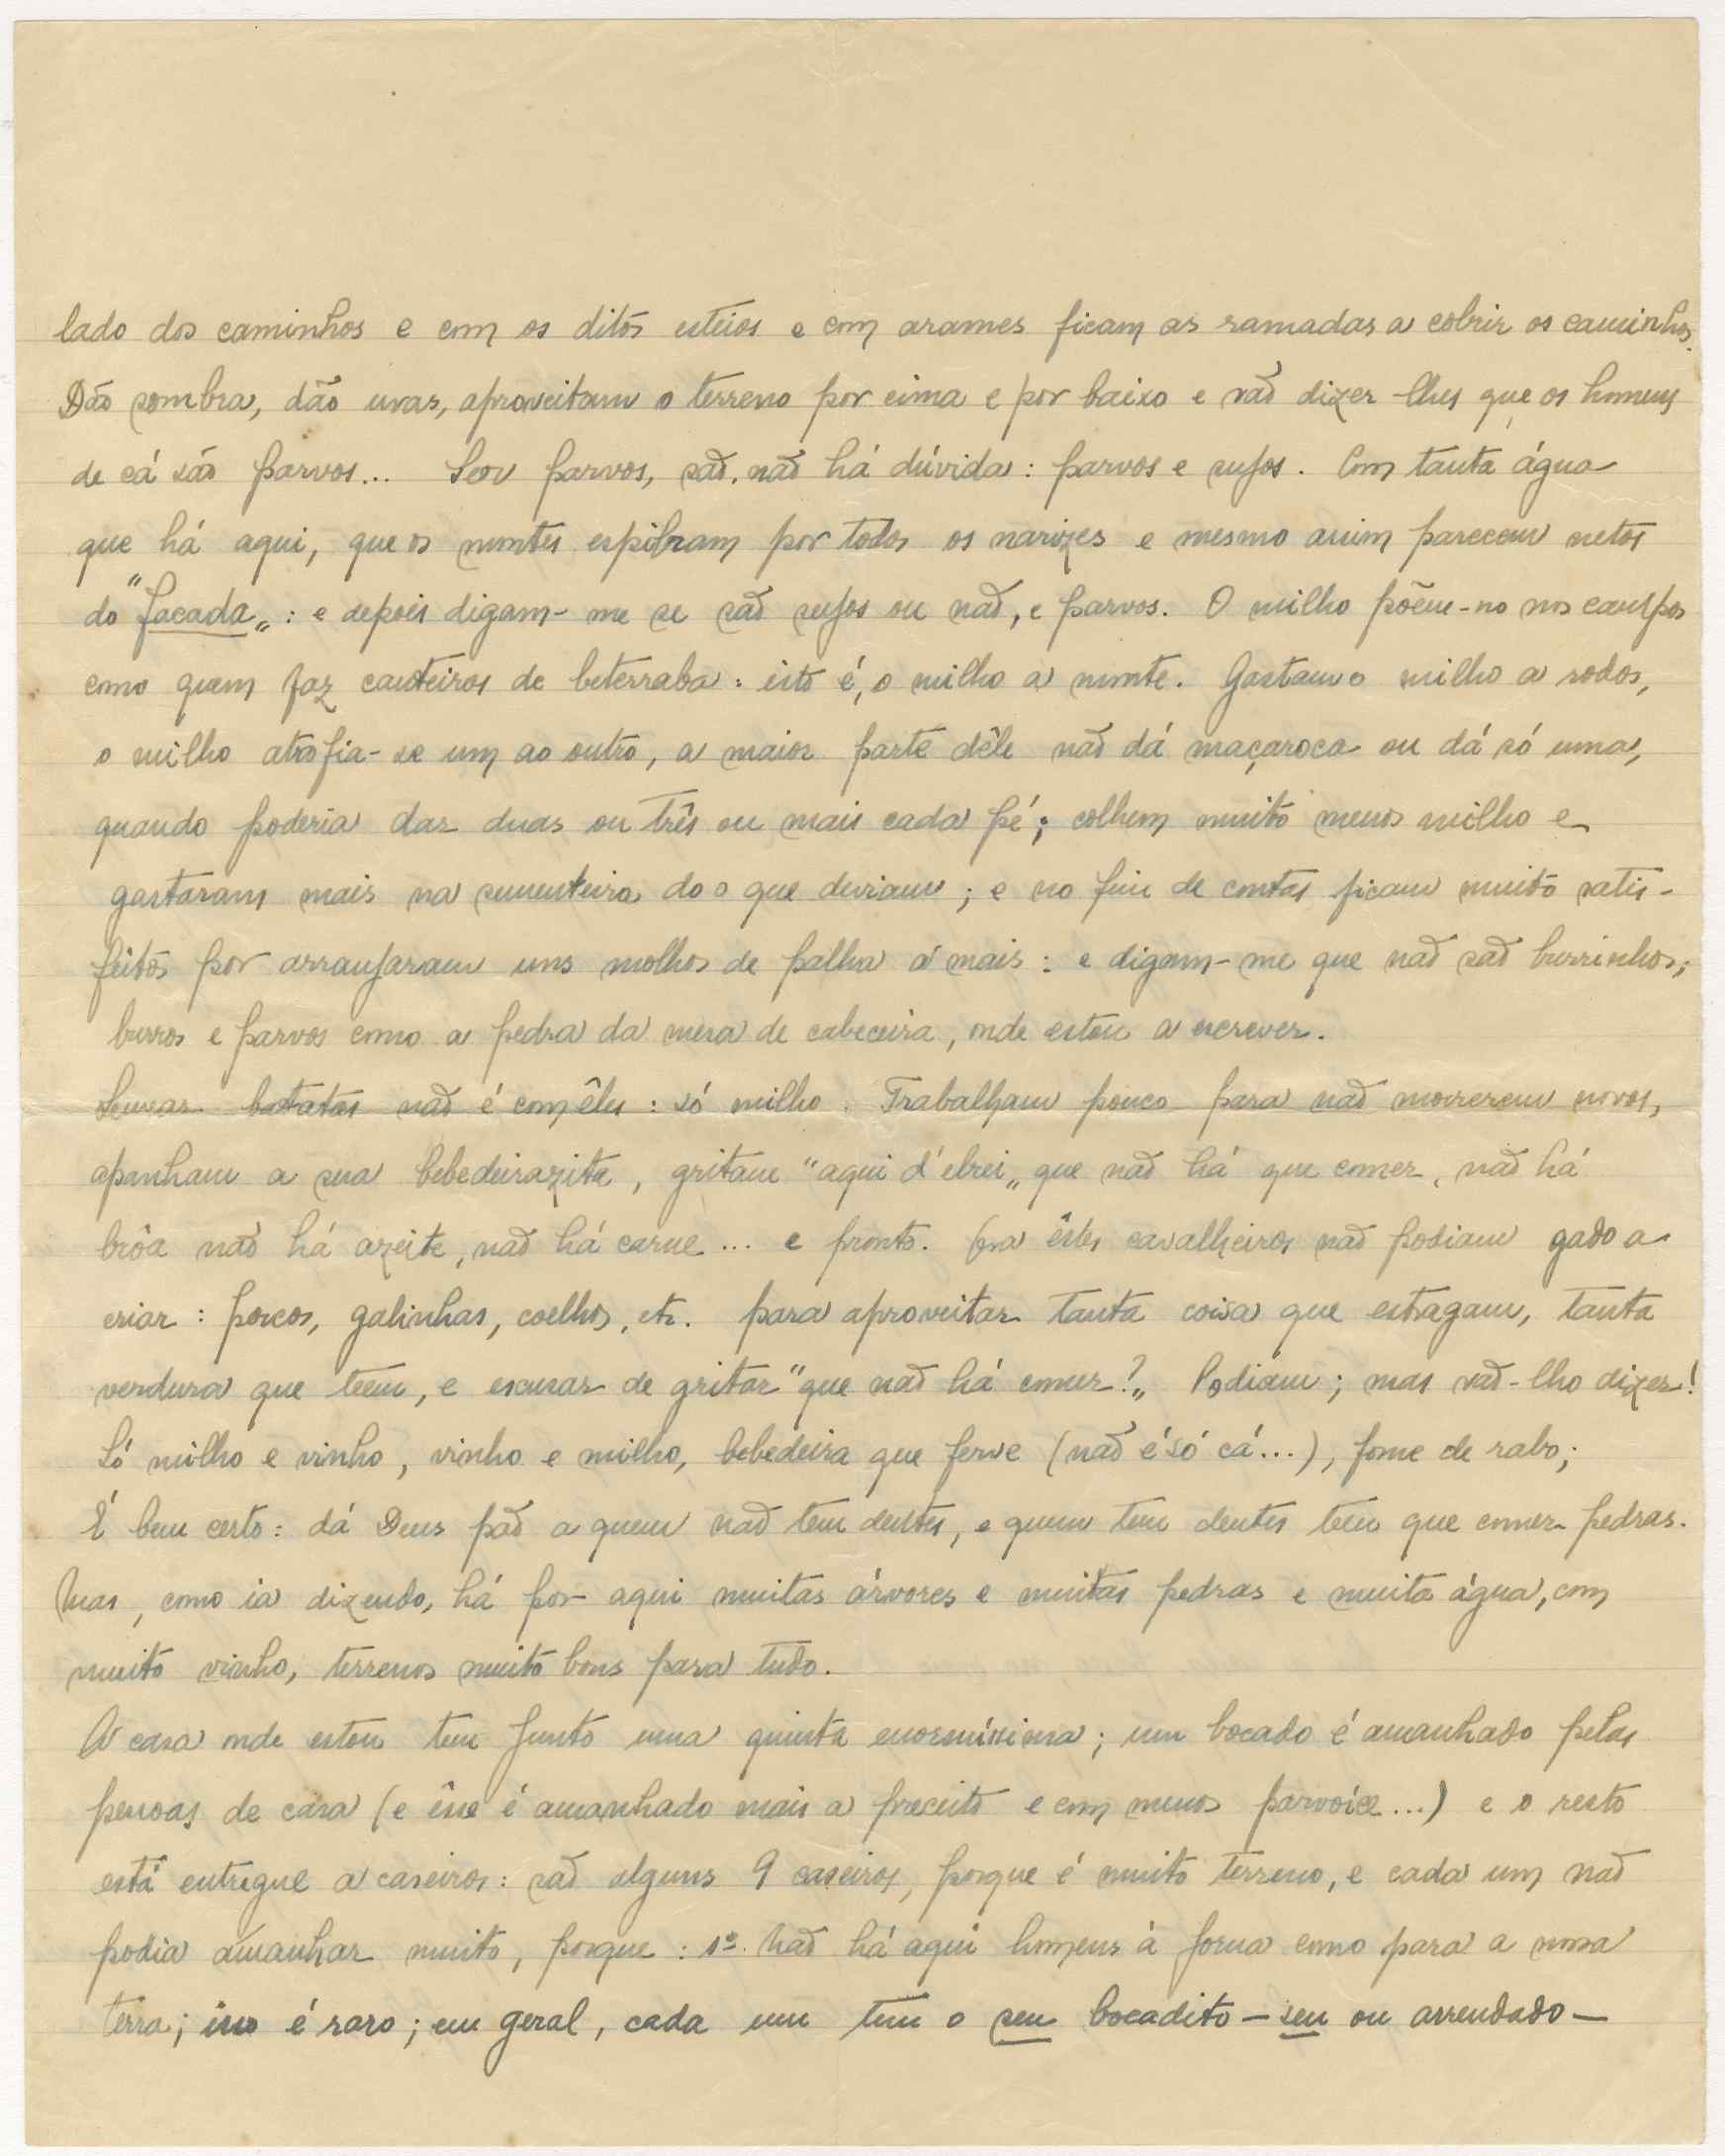 lado dos caminhos e com os ditos esteios e com arames ficam as ramadas a cobrir os caminhos.
Dão sombra, dão uvas, aproveitam o terreno por cima e por baixo e vão dizer-lhes que os homens
de cá são parvos... parvos, são, não há dúvida: parvos e sujos. Com tanta água
que há aqui, que os montes espirram por todos os narizes e mesmo assim parecem netos
do "facada„: e depois digam-me se são sujos ou não, e parvos. O milho põem-no nos campos
como quem faz canteiros de beterraba: isto é, o milho a monte. Gastam o milho a rodos,
o milho atrofia-se um ao outro, a maior parte dêle não dá maçaroca ou dá só uma,
quando poderia dar duas ou três ou mais cada pé; colhem muito menos milho e
gastaram mais na sementeira do o que deviam; e no fim de contas ficam muito satis-
feitos por arranjaram uns molhos de palha a mais: e digam-me que não são burrinhos;
burros e parvos como a pedra da mesa de cabeceira, onde estou a escrever.
Semear batatas não é com êles: só milho. Trabalham pouco para não morrerem novos,
apanham a sua bebedeirazita, gritam "aqui d'elrei„ que não há que comer, não há
brôa não há azeite, não há carne... e pronto. Ora êstes cavalheiros não podiam gado a
criar: porcos, galinhas, coelhos, etc. para aproveitar tanta coisa que estragam, tanta
verdura que teem, e escusar de gritar "que não há comer?„ Podiam; mas vão-lho dizer!
Só milho e vinho, vinho e milho, bebedeira que ferve (não é só cá...), fome de rabo;
É bem certo: dá Deus pão a quem não tem dentes, e quem tem dentes tem que comer pedras.
Mas, como ia dizendo, há por aqui muitas árvores e muitas pedras e muita água, com
muito vinho, terrenos muito bons para tudo.
A casa onde estou tem junto uma quinta enormíssima; um bocado é amanhado pelas
pessoas de casa (e êsse é amanhado mais a preceito e com menos parvoíce...) e o resto
está entregue a caseiros: são alguns 9 caseiros, porque é muito terreno, e cada um não
podia amanhar muito, porque: 1º. não há aqui homens à jorna como para a nossa
terra; isso é raro; em geral, cada um tem o seu bocadito — seu ou arrendado —